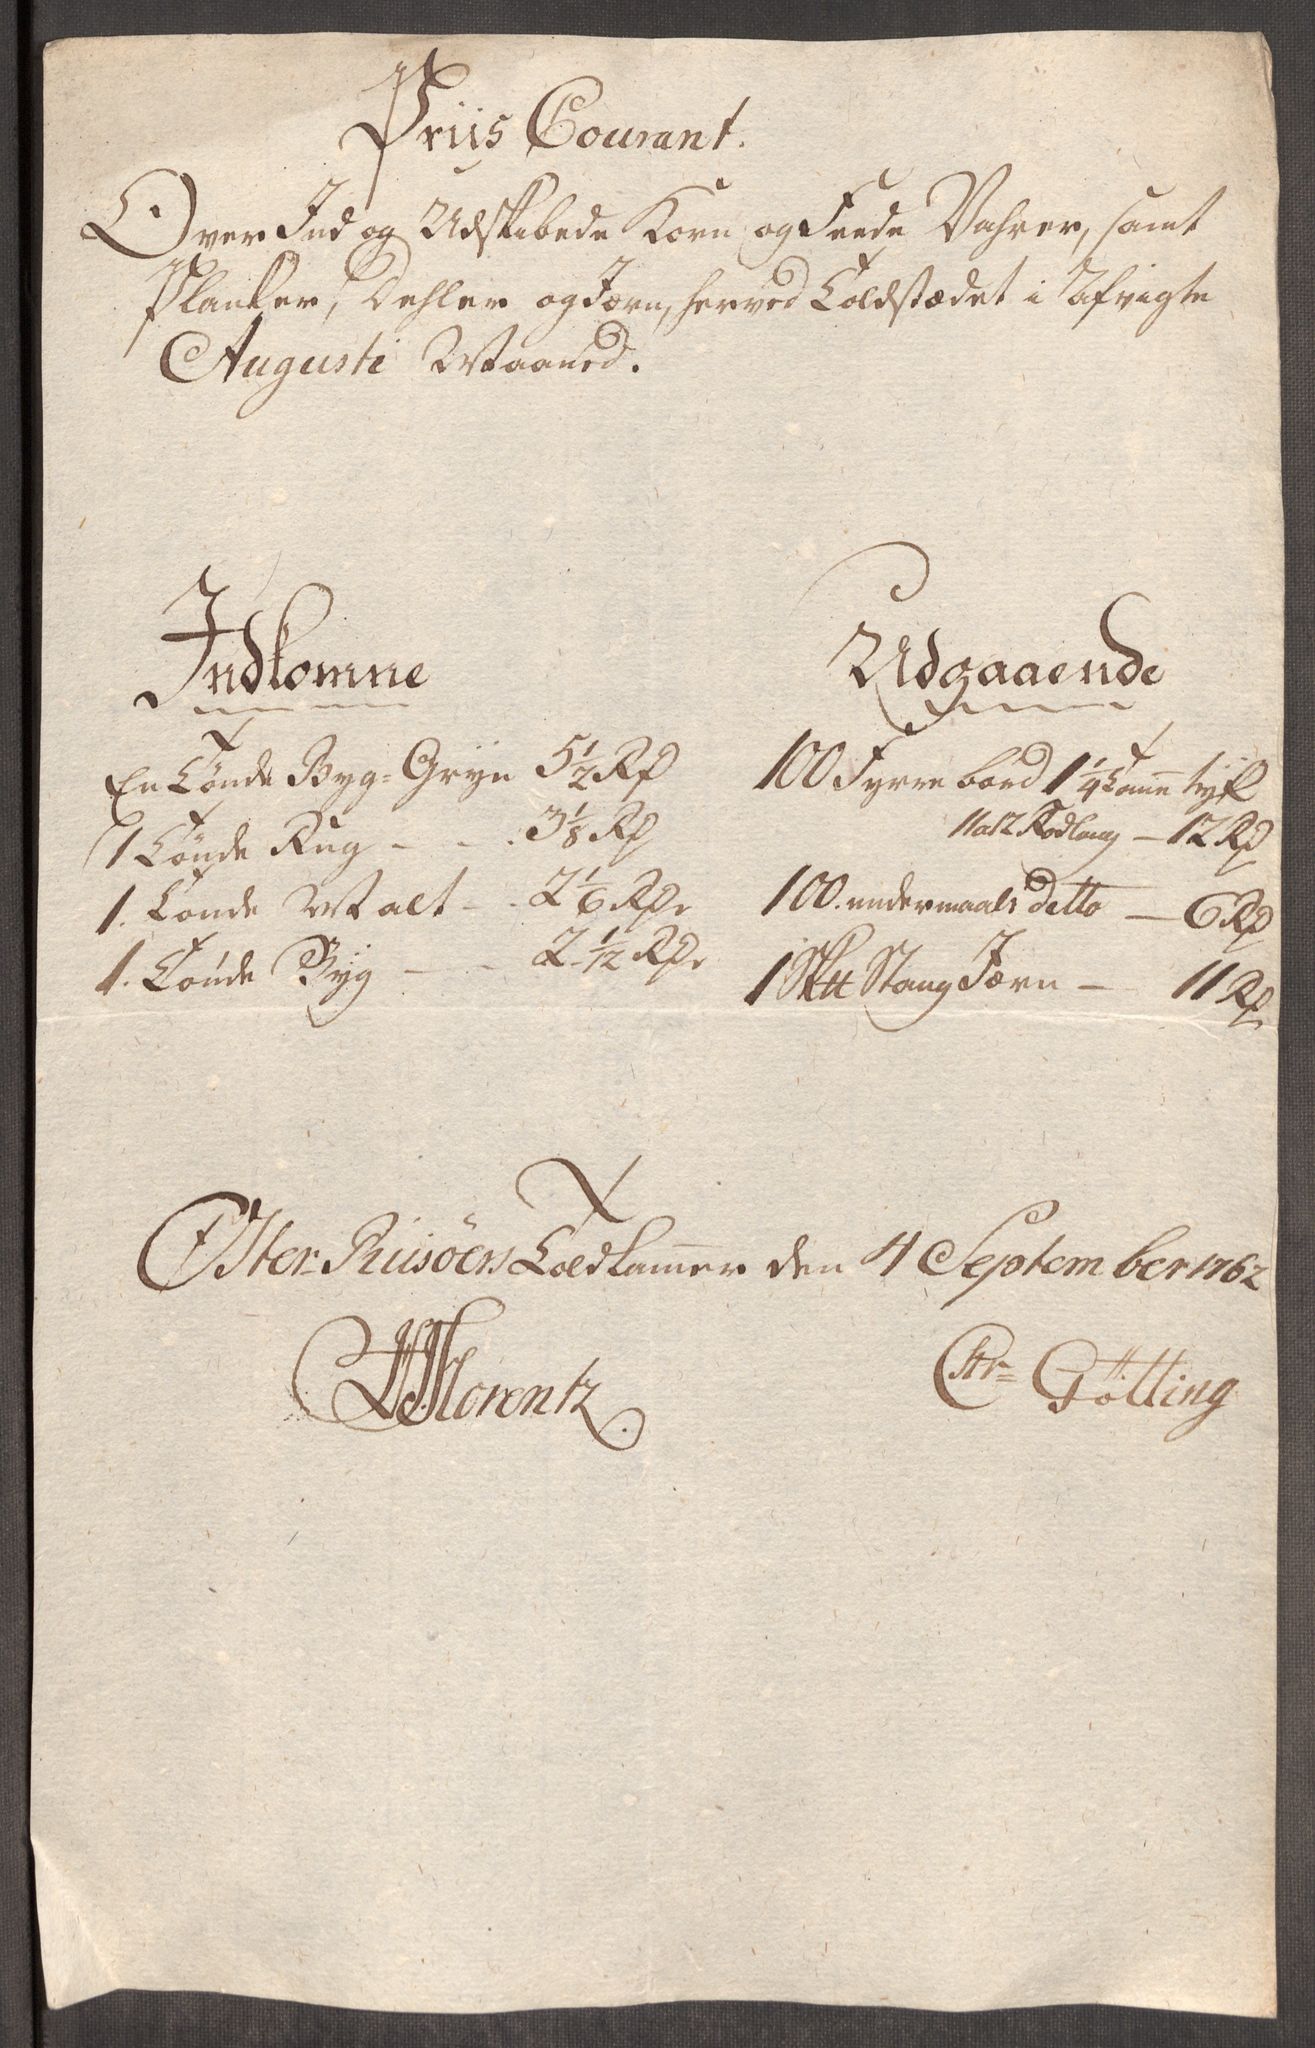 Priis Courant.
Over Ind og Udskibede Korn og Feede Vahrer, samt
Planker, Dehler og Jærn, herved Toldstædet i Afvigte
Augusti Maaned.
Indkomne
En Tønde Byg-Gryn 5 1/2 Rd
1 Tønde Rug - - . 3 1/8 Rd
1. Tønde Malt - . 2 1/6 Rd.
1. Tønde Byg - - 2 1/12 Rd.
Udgaaende
100 Fyrre bord 1 1/4 Tomme tyk
11 a 12 Fod lang - 12 Rd
100. undermaals detto - 6 Rd
1 Sk℔ Stang Jærn - 11 Rd
Øster-Riisöers Toldkammer den 4 September 1762
Lorentz
Chr= Götting